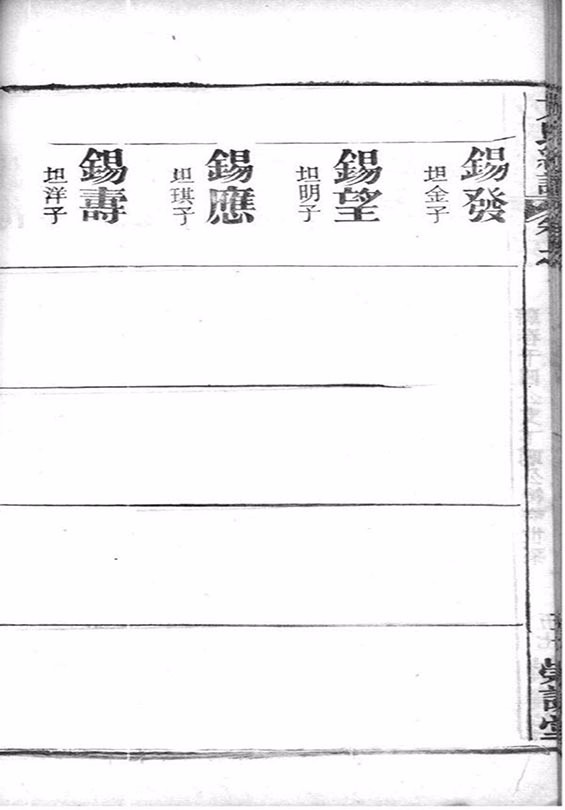 錫發
坦金子
錫望
坦明子
錫應
坦琪子
錫壽
坦洋子